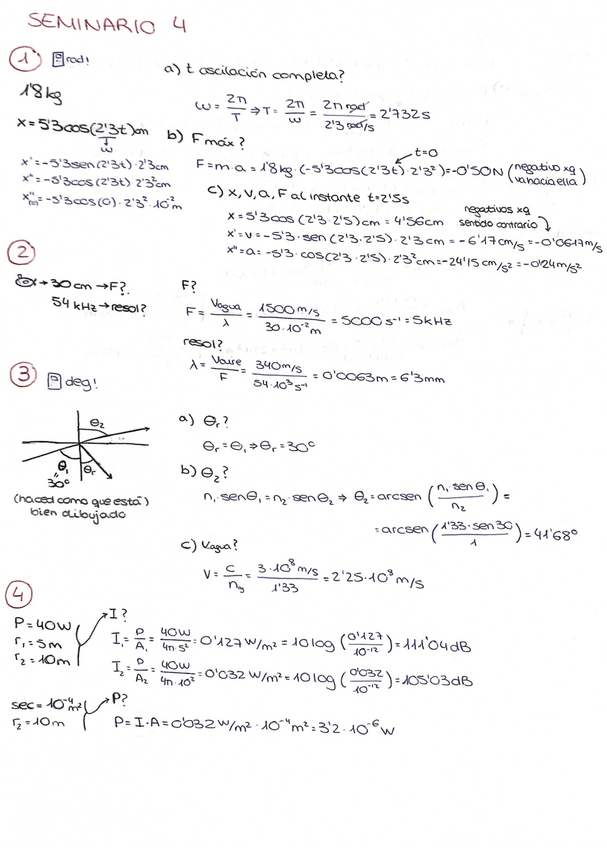 SEMINARIO 4
1 rad!
1'8 kg
x = 5'3 cos(2'3t) cm
ω
x' = -5'3 sen(2'3t)·2'3 cm
x'' = -5'3 cos(2'3t) 2'3² cm
x''(0) = -5'3 cos(0)·2'3²·10⁻² m
a) t oscilación completa?
ω = 2π/T ⇒ T = 2π/ω = 2π rad / 2'3 rad/s = 2'732 s
b) F máx?
t=0
F = m·a = 1'8 kg·(-5'3 cos(2'3t)·2'3²) = -0'50 N (negativo xq va hacia ella)
c) x, v, a, F al instante t=2'5s
negativos xq sentido contrario
x = 5'3 cos(2'3·2'5) cm = 4'56 cm
x' = v = -5'3·sen(2'3·2'5)·2'3 cm = -6'17 cm/s = -0'0617 m/s
x'' = a = -5'3·cos(2'3·2'5)·2'3² cm = -24'15 cm/s² = -0'24 m/s²
2
→ 30 cm → F?
54 kHz → resol?
F?
F = Vagua/λ = 1500 m/s / 30·10⁻² m = 5000 s⁻¹ = 5 kHz
resol?
λ = Vaire/F = 340 m/s / 54·10³ s⁻¹ = 0'0063 m = 6'3 mm
3 deg!
θ₂
θ₁ θr
"
30°
(haced como que está bien dibujado)
a) θr?
θr = θ₁ ⇒ θr = 30°
b) θ₂?
n₁·senθ₁ = n₂·senθ₂ ⇒ θ₂ = arcsen (n₁·senθ₁ / n₂) =
= arcsen (1'33·sen30 / 1) = 41'68°
c) Vagua?
V = c/ng = 3·10⁸ m/s / 1'33 = 2'25·10⁸ m/s
4
P = 40W
r₁ = 5m
r₂ = 10m
I?
I₁ = P/A₁ = 40W / 4π·5² = 0'127 W/m² = 10 log (0'127 / 10⁻¹²) = 111'04 dB
I₂ = P/A₂ = 40W / 4π·10² = 0'032 W/m² = 10 log (0'032 / 10⁻¹²) = 105'03 dB
sec = 10⁻⁴ m²
r₂ = 10m
P?
P = I·A = 0'032 W/m²·10⁻⁴ m² = 3'2·10⁻⁶ W